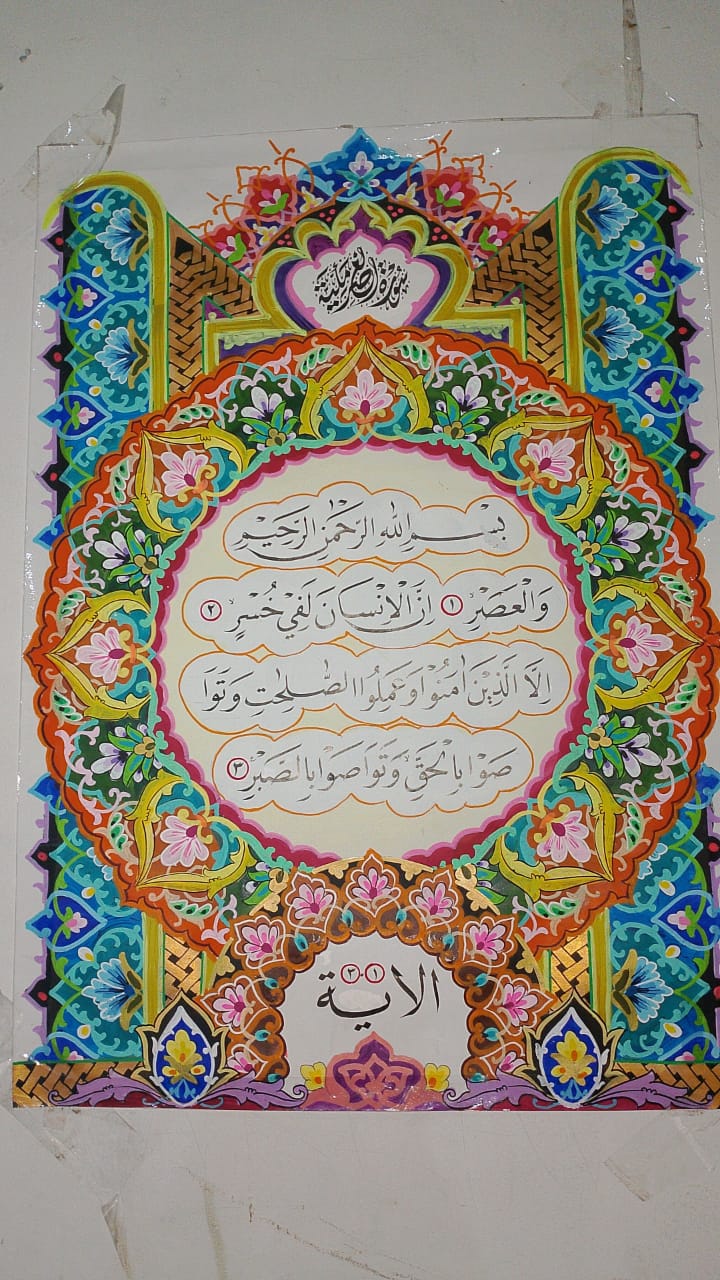 سورة العصر مكية
بِسْمِ اللهِ الرَّحْمٰنِ الرَّحِيْمِ
وَالْعَصْرِۙ ١ اِنَّ الْاِنْسَانَ لَفِيْ خُسْرٍۙ ٢
اِلَّا الَّذِيْنَ اٰمَنُوْا وَعَمِلُوا الصّٰلِحٰتِ وَتَوَا
صَوْا بِالْحَقِّ ەۙ وَتَوَاصَوْا بِالصَّبْرِ ٣
الاية ١-٣